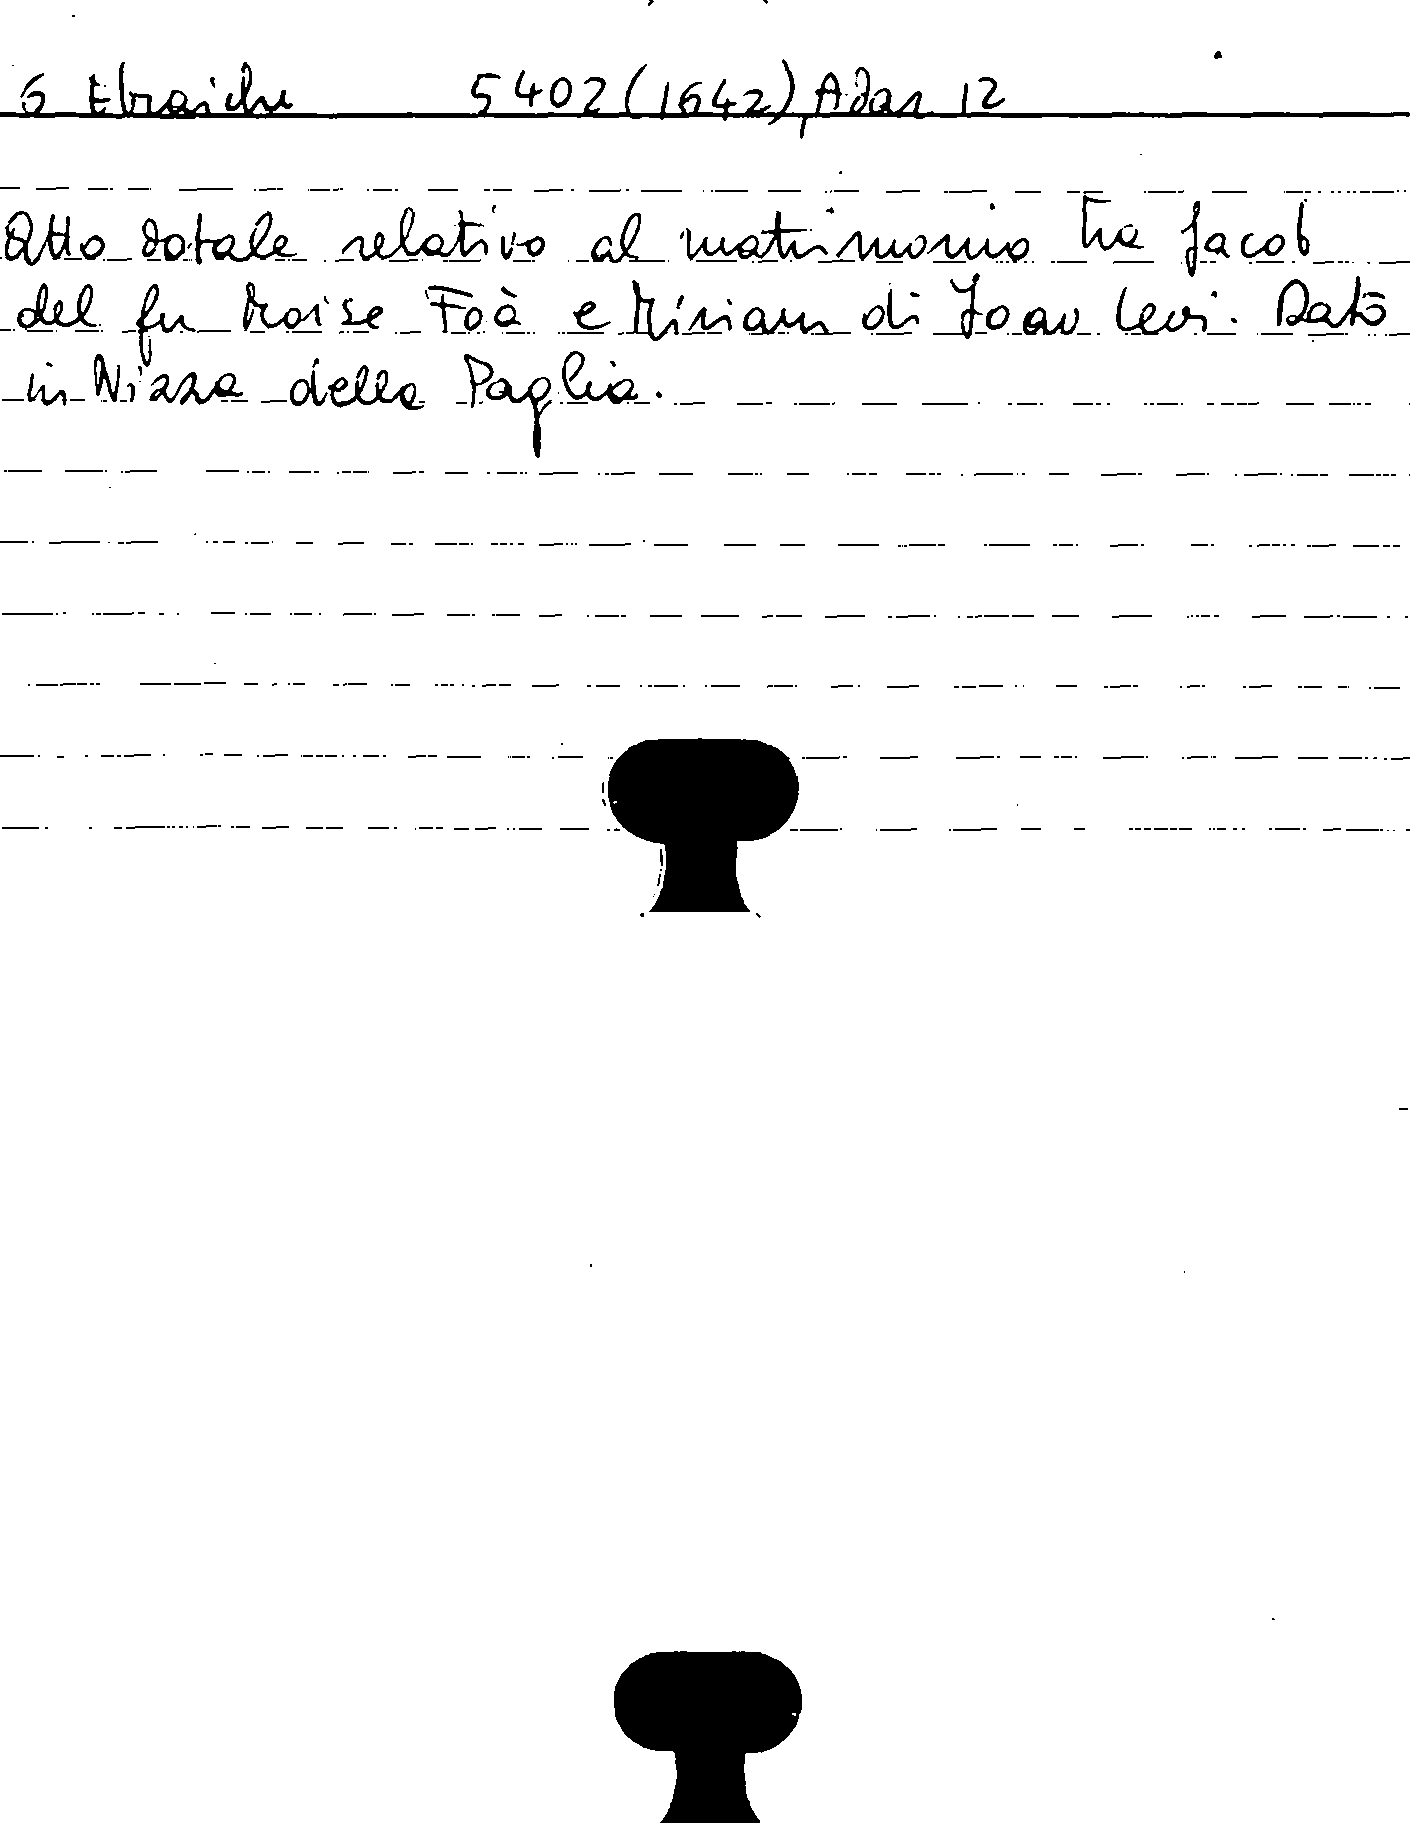 6 Ebraiche 5402 (1642), Adar 12
Atto dotale relativo al matrimonio tra Jacob
del fu Moise Foà e Miriam di Joav Levi. Dato
in Nizza della Paglia.